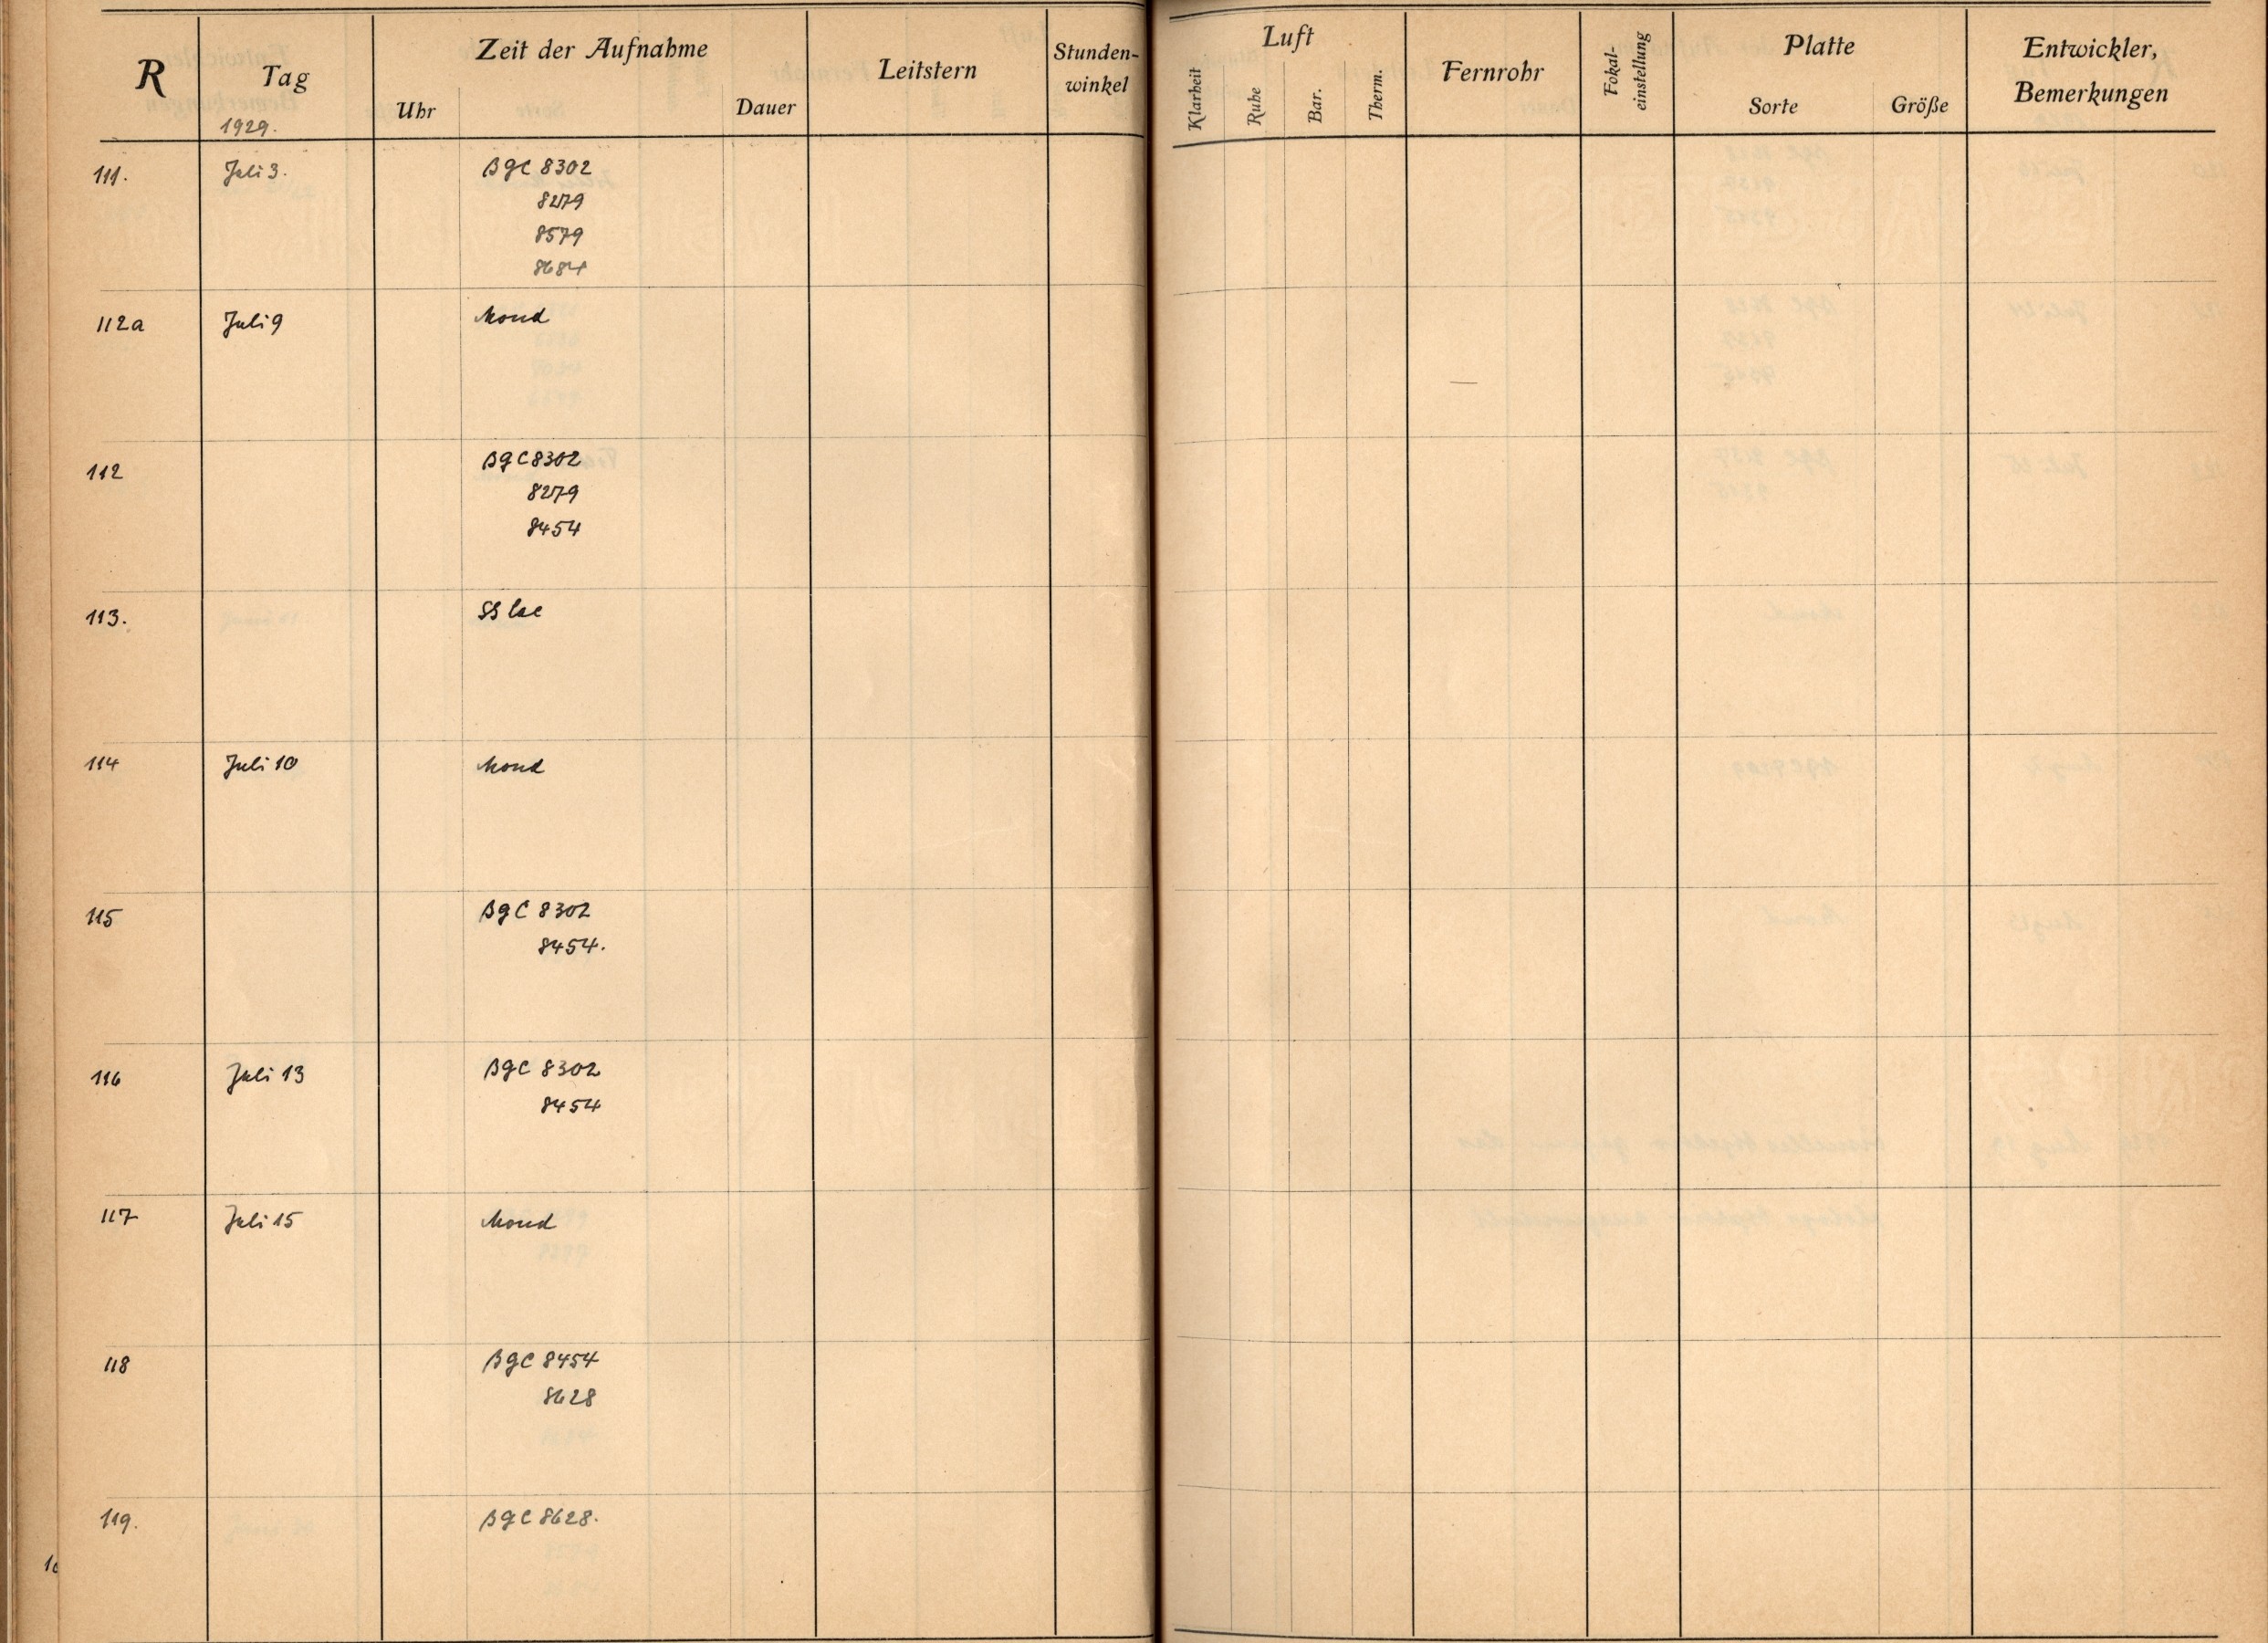 R
Tag
1929.
Zeit der Aufnahme
Uhr
Dauer
Leitstern
Stunden-
winkel
Luft
Klarheit
Ruhe
Bar.
Therm.
Fernrohr
Fokal-
einstellung
Platte
Sorte
Größe
Entwickler,
Bemerkungen
111. Juli 3. BGC 8302
8279
8579
8684
112a Juli 9 Mond
112 BGC 8302
8279
8454
113. SS Lac
114 Juli 10 Mond
115 BGC 8302
8454.
116 Juli 13 BGC 8302
8454
117 Juli 15 Mond
118 BGC 8454
8628
119. BGC 8628.